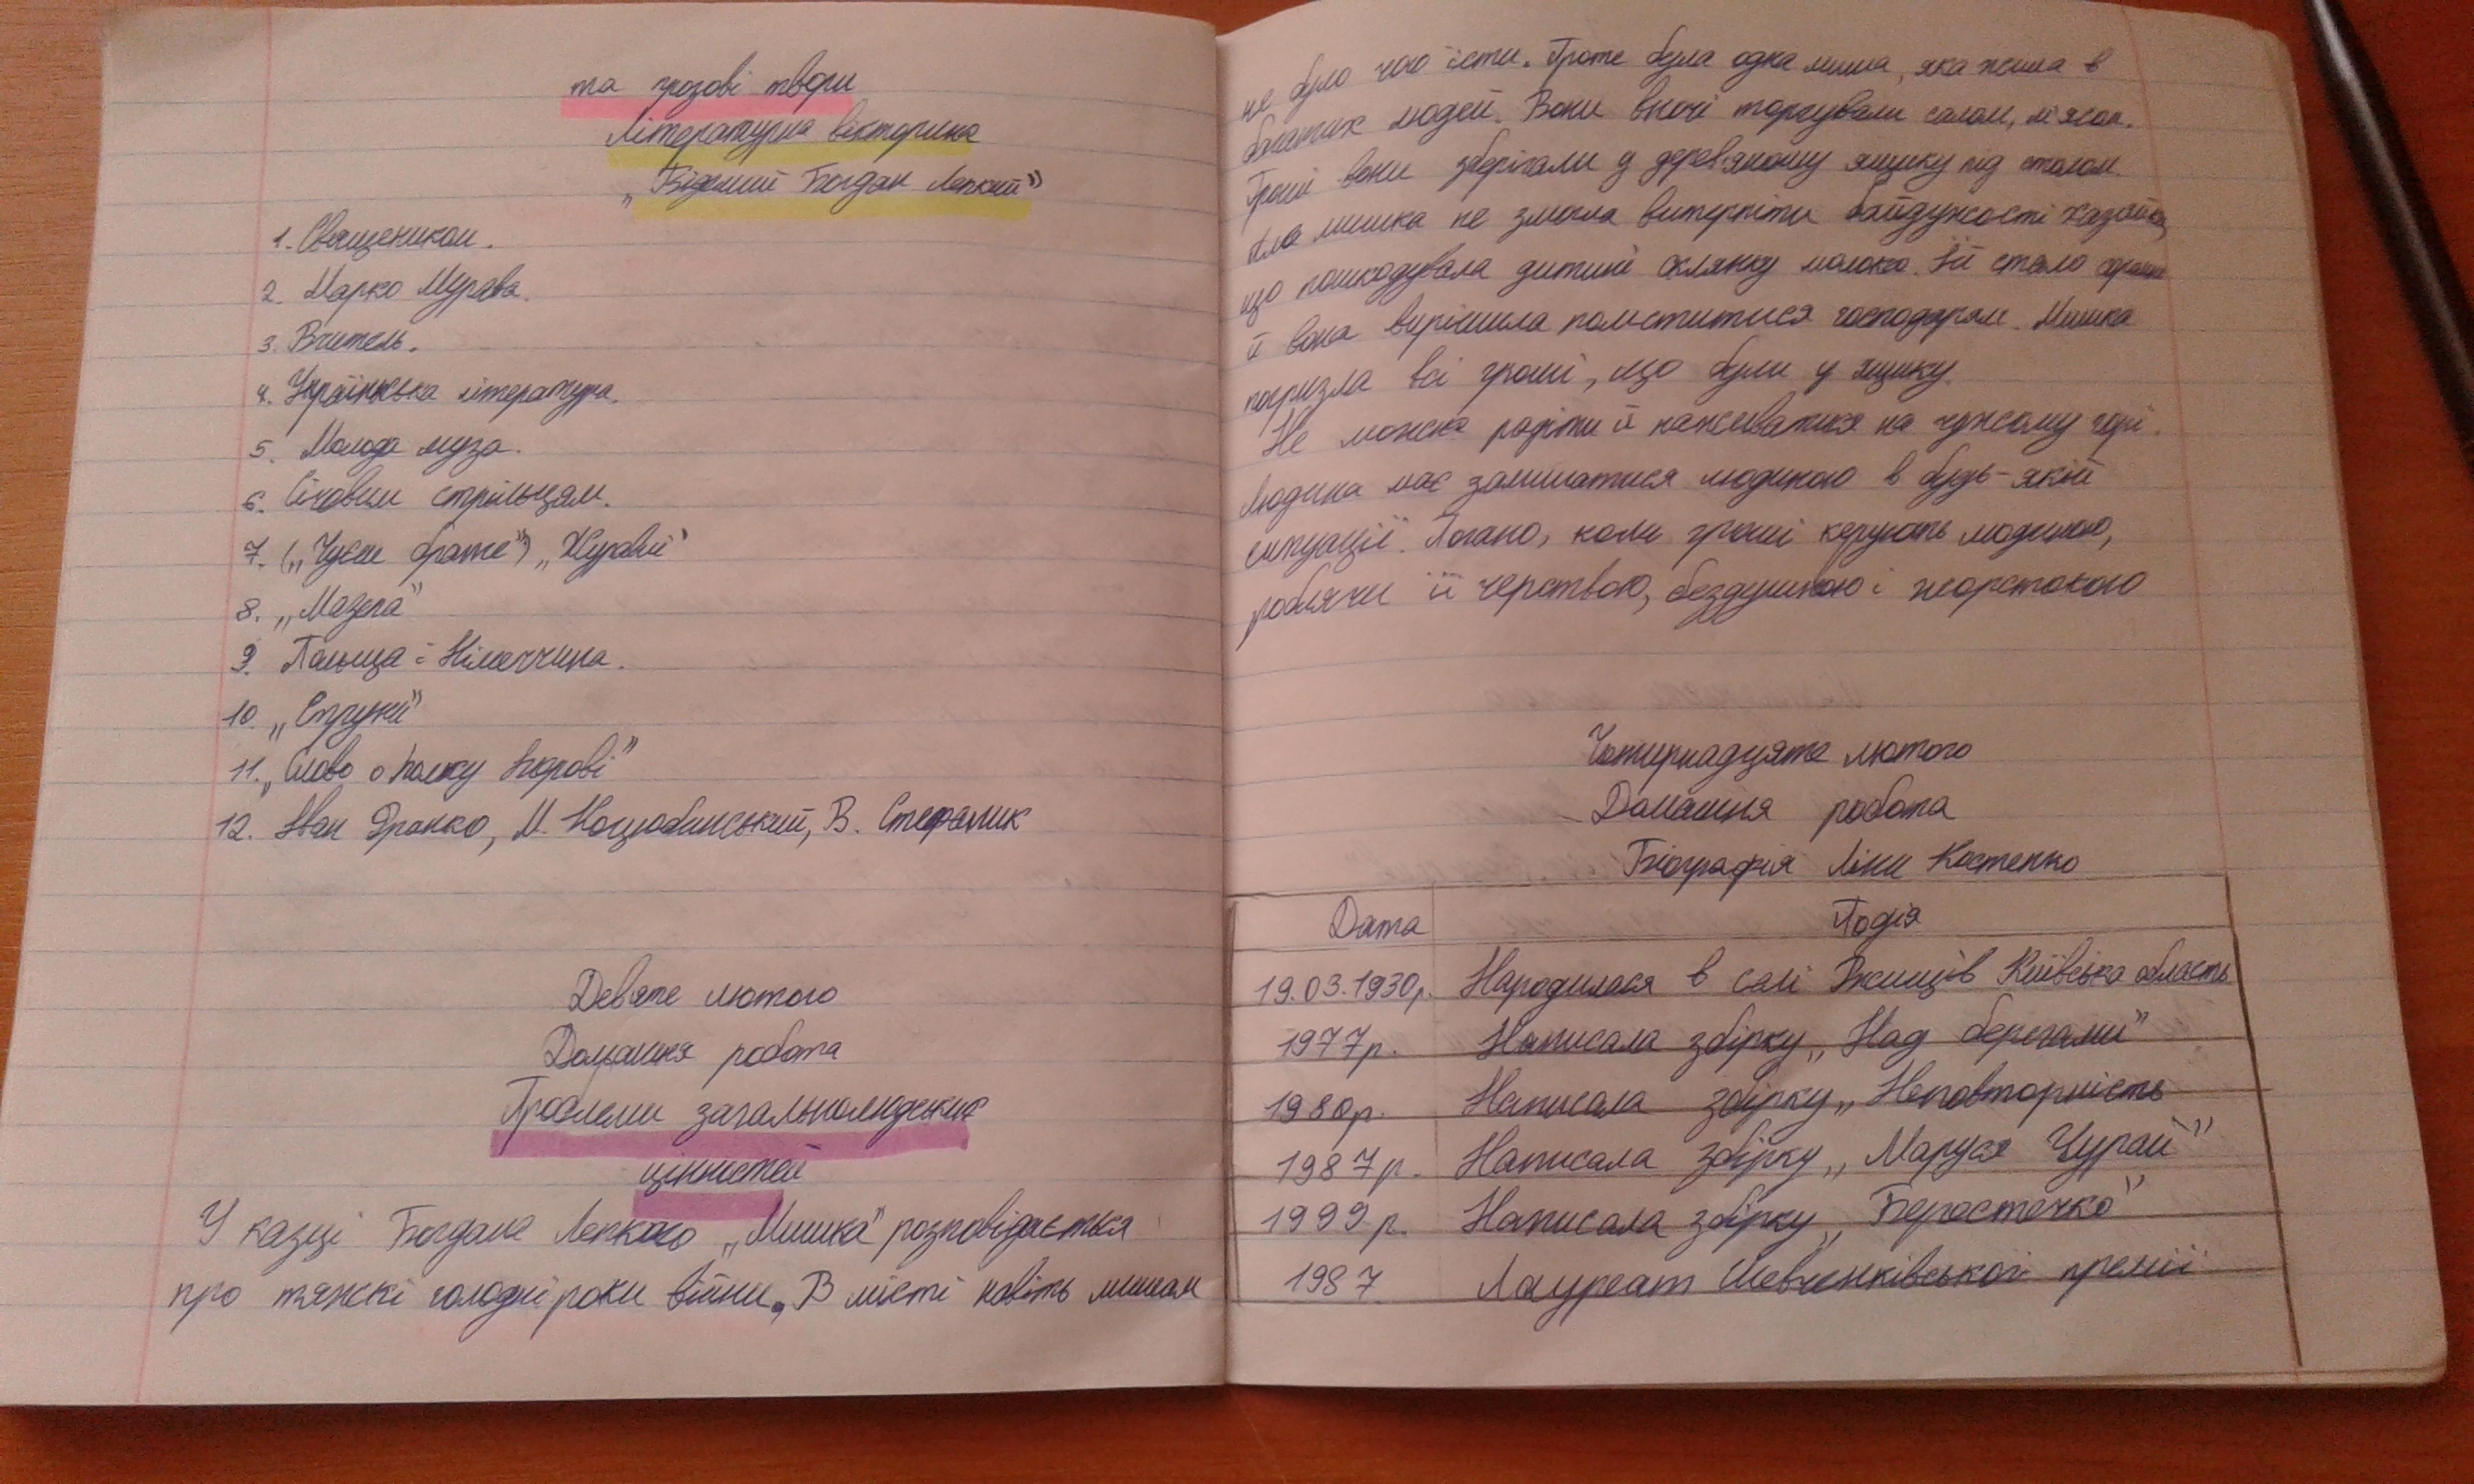 та прозові твори
Літературна вікторина
„Відомий Богдан Лепкий”
1. Священиком.
2. Марко Мурава.
3. Вчитель.
4. Українська література.
5. Молода муза.
6. Січовим стрільцям.
7. („Чуєш брате”) „Журавлі”
8. „Мазепа”
9. Польща і Німеччина.
10. „Струни”
11. „Слово о полку Ігорові”
12. Іван Франко, М. Коцюбинський, В. Стефаник
Дев'яте лютого
Домашня робота
Проблеми загальнолюдських
цінностей
У казці Богдана Лепкого „Мишка” розповідається
про тяжкі голодні роки війни. В місті навіть мишам
не було чого їсти. Проте була одна миша, яка жила в
багатих людей. Вони вночі торгували салом, м'ясом.
Гроші вони зберігали у дерев'яному ящику під столом.
мишка не змогла витерпіти байдужості хазяйки,
що пошкодувала дитині склянку молока. Їй стало
й вона вирішила помститися господарям. Мишка
погризла всі гроші, що були у ящику.
Не можна радіти й наживатися на чужому горі.
Людина має залишатися людиною в будь-якій
ситуації. Погано, коли гроші керують людиною,
роблячи її черствою, бездушною і жорстокою
Чотирнадцяте лютого
Домашня робота
Біографія Ліни Костенко
Дата Подія
19.03.1930р. Народилася в селі Ржищів Київська область
1977р. Написала збірку „Над берегами”
1980р. Написала збірку „Неповторність
1987р. Написала збірку „Маруся Чурай”
1999р. Написала збірку „Берестечко”
1987 Лауреат Шевченківської премії